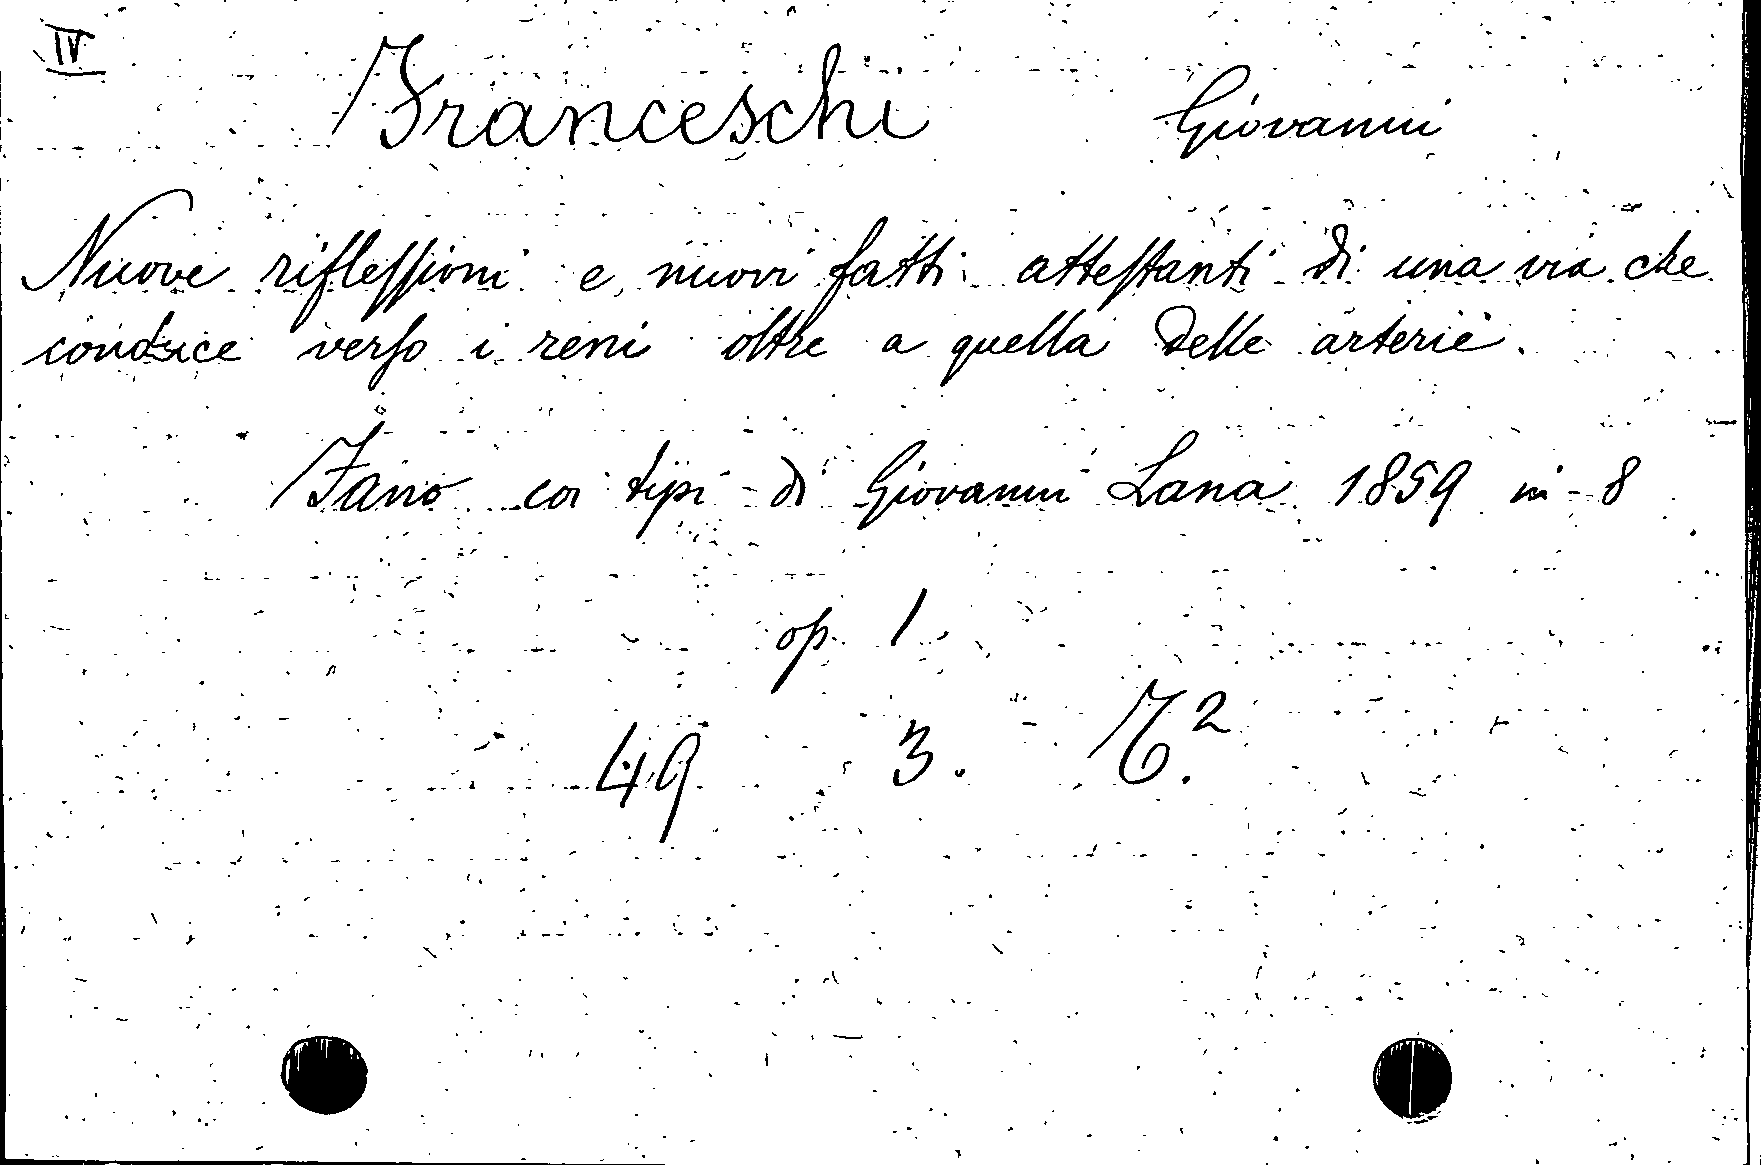 IV
Franceschi Giovanni
Nuove rifleſſioni e nuovi fatti atteſtanti di una via che
conduce verſo i reni oltre a quella delle arterie.
Fano coi tipi di Giovanni Lana 1859 in-8
op. 1
49 3.